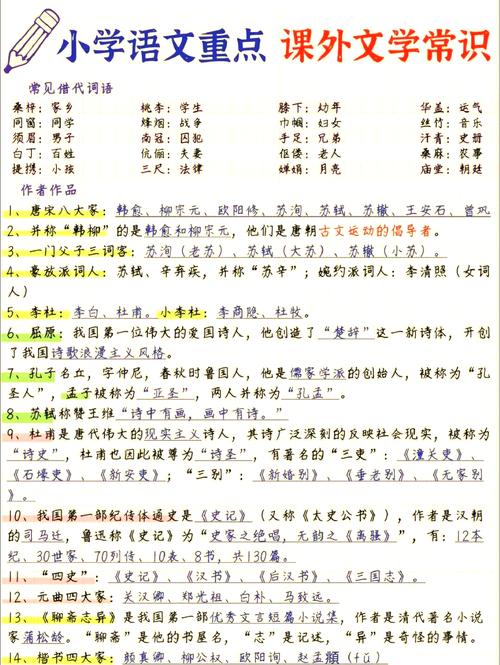 小学语文重点 课外文学常识
常见借代词语
桑梓：家乡 桃李：学生 膝下：幼年 华盖：运气
同窗：同学 烽烟：战争 巾帼：妇女 丝竹：音乐
须眉：男子 南冠：囚犯 手足：兄弟 汗青：史册
白丁：百姓 伉俪：夫妻 伛偻：老人 桑麻：农事
提携：小孩 三尺：法律 婵娟：月亮 庙堂：朝廷
作者作品
1、唐宋八大家：韩愈、柳宗元、欧阳修、苏洵、苏轼、苏辙、王安石、曾巩
2、并称“韩柳”的是韩愈和柳宗元，他们是唐朝古文运动的倡导者。
3、一门父子三词客：苏洵（老苏）、苏轼（大苏）、苏辙（小苏）。
4、豪放派词人：苏轼、辛弃疾，并称“苏辛”；婉约派词人：李清照（女词
人）
5、李杜：李白、杜甫。小李杜：李商隐、杜牧。
6、屈原：我国第一位伟大的爱国诗人，他创造了“楚辞”这一新诗体，开创
了我国诗歌浪漫主义风格。
7、孔子名丘，字仲尼，春秋时鲁国人，他是儒家学派的创始人，被称为“孔
圣人”，孟子被称为“亚圣”，两人并称为“孔孟”。
8、苏轼称赞王维“诗中有画，画中有诗。”
9、杜甫是唐代伟大的现实主义诗人，共诗广泛深刻的反映社会现实，被称为
“诗史”，杜甫也因此被尊为“诗圣”，有著名的“三吏”：《潼关吏》、
《石壕吏》、《新安吏》；“三别”：《新婚别》、《垂老别》、《无家别
》。
10、我国第一部纪传体通史是《史记》（又称《太史公书》），作者是汉朝
的司马迁，鲁迅称《史记》为“史家之绝唱，无韵之《离骚》”，有：12本
纪、30世家、70列传、10表、8书，共130篇。
11、“四史”：《史记》、《汉书》、《后汉书》、《三国志》。
12、元曲四大家：关汉卿、郑光祖、白朴、马致远。
13、《聊斋志异》是我国第一部优秀文言短篇小说集，作者是清代著名小说
家蒲松龄。“聊斋”是他的书屋名，“志”是记述，“异”是奇怪的事情。
14、楷书四大家：颜真卿、柳公权、欧阳询、赵孟頫（fǔ）